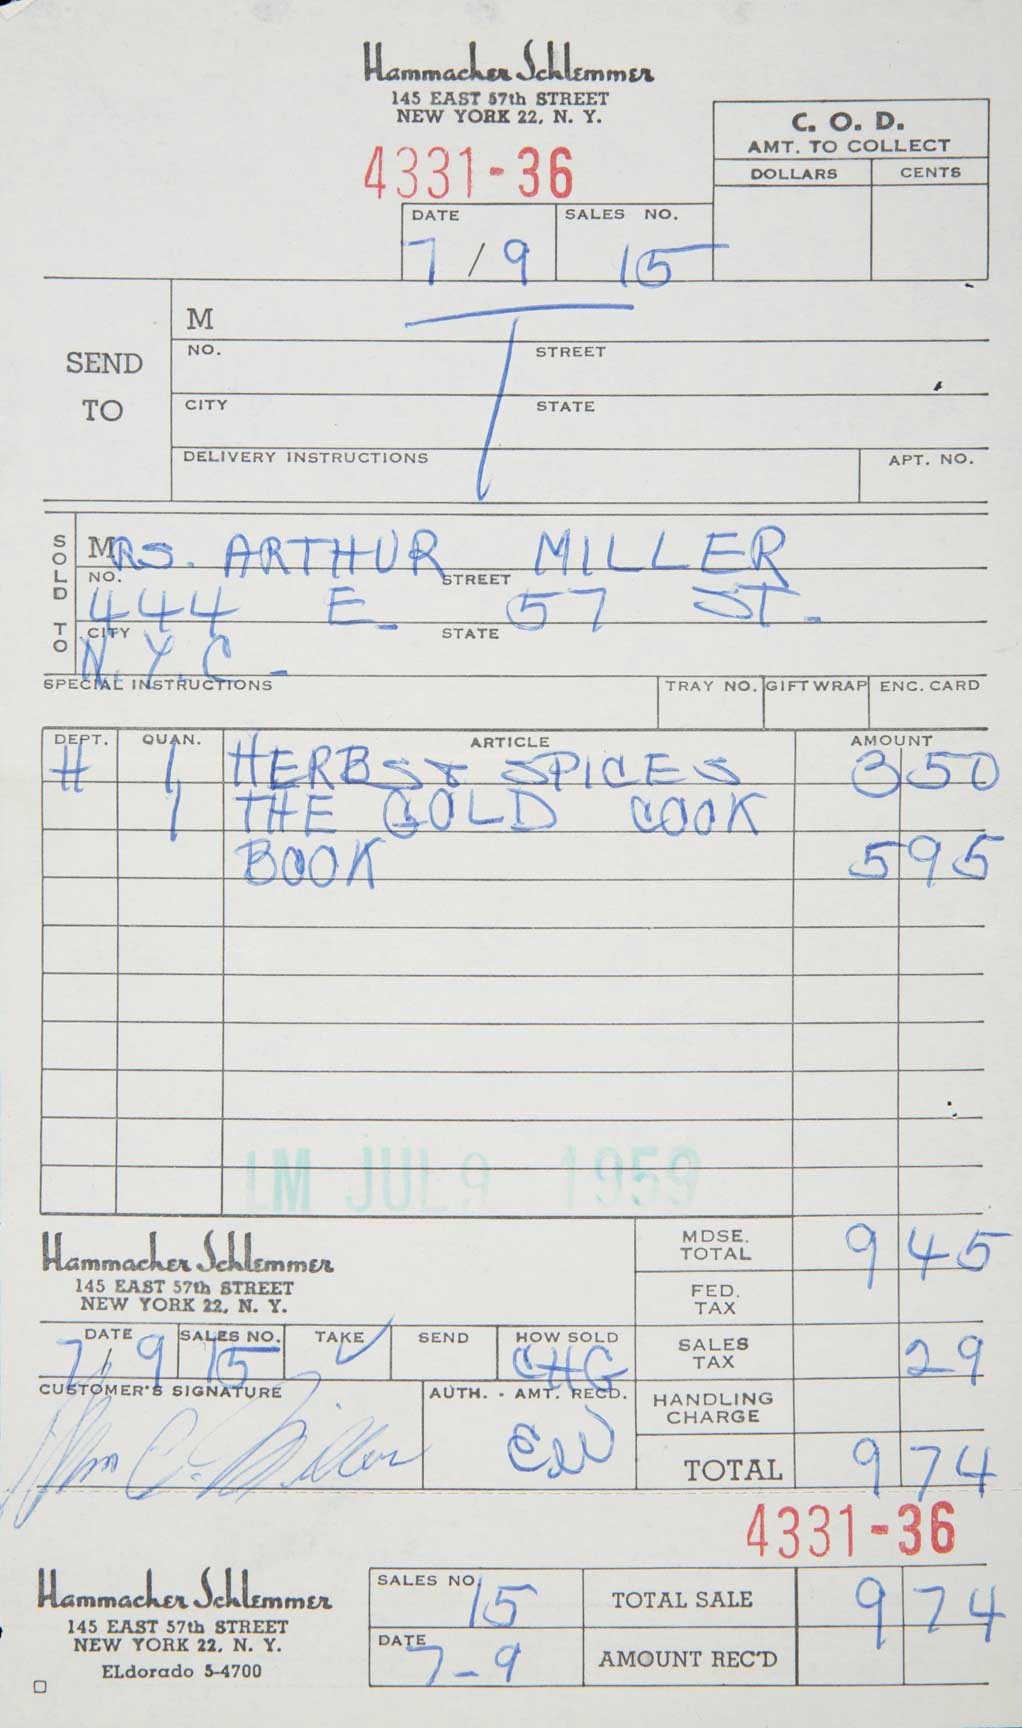 Hammacher Schlemmer
145 EAST 57th STREET
NEW YORK 22, N. Y.
C. O. D.
AMT. TO COLLECT
DOLLARS CENTS
4331-36
DATE SALES NO.
7/9 15
SEND TO
M
NO. STREET
CITY STATE
DELIVERY INSTRUCTIONS APT. NO.
SOLD TO
MRS. ARTHUR MILLER
NO. STREET
444 E. 57 ST.
CITY STATE
N.Y.C.
SPECIAL INSTRUCTIONS TRAY NO. GIFT WRAP ENC. CARD
DEPT. QUAN. ARTICLE AMOUNT
H 1 HERBS & SPICES 3 50
1 THE GOLD COOK
BOOK 5 95
LM JUL 9 1959
Hammacher Schlemmer
145 EAST 57th STREET
NEW YORK 22, N. Y.
MDSE. TOTAL 9 45
FED. TAX
DATE SALES NO. TAKE SEND HOW SOLD
7/9 15 ✓ CHG
SALES TAX 29
CUSTOMER'S SIGNATURE AUTH. - AMT. REC'D.
HANDLING CHARGE
Miller
TOTAL 9 74
4331-36
Hammacher Schlemmer
145 EAST 57th STREET
NEW YORK 22, N. Y.
ELdorado 5-4700
SALES NO. 15 TOTAL SALE 9 74
DATE 7-9 AMOUNT REC'D